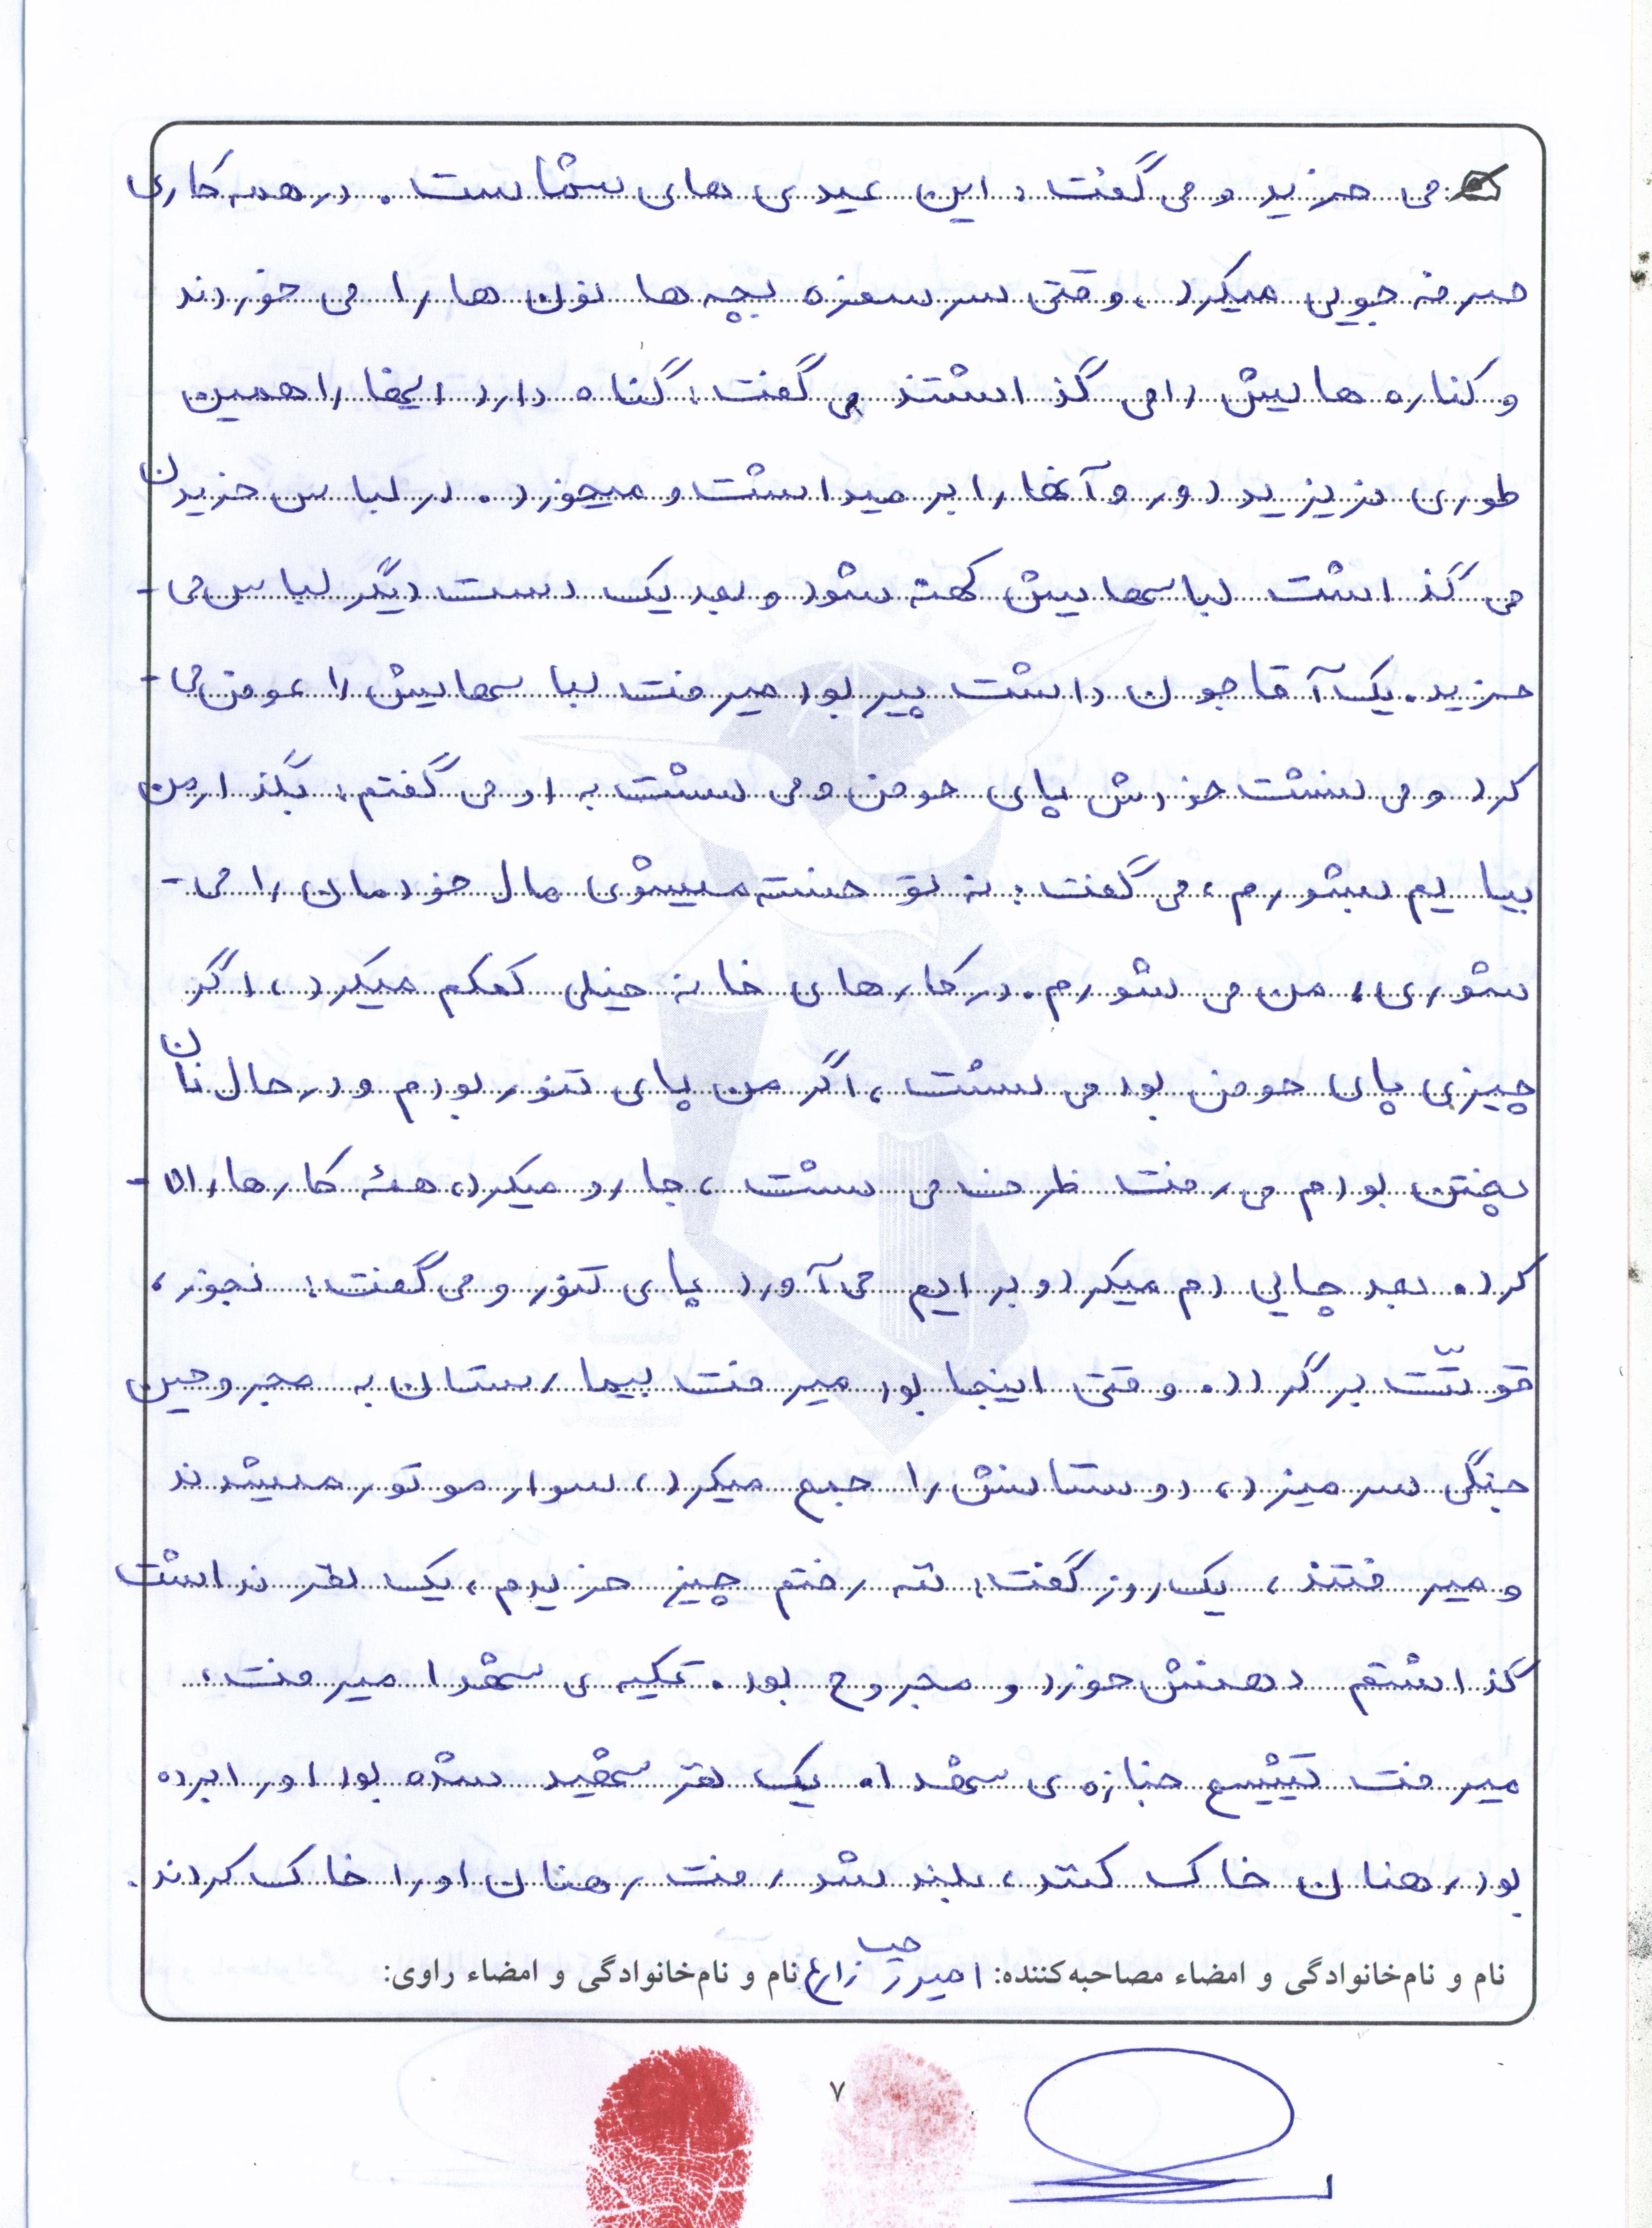 می خرید و می گفت: این عیدی های شماست. در همه کاری
صرفه جویی میکرد، وقتی سر سفره بچه ها نون ها را می خوردند
و کناره هایش را می گذاشتند می گفت: گناه دارد اینها را همین
طوری نریزید دور و آنها را بر میداشت و میخورد. در لباس خریدن
می گذاشت لباسهایش کهنه شود و بعد یک دست دیگر لباس می-
خرید. یک آقاجون داشت پیر بود میرفت لباسهایش را عوض می-
کرد و می نشست خودش پای حوض و می شست به او می گفتم: بگذار من
بیایم بشورم، می گفت: نه تو خسته میشوی مال خودمان را می-
شوری، من می شورم. در کارهای خانه خیلی کمکم میکرد، اگر
چیزی پای حوض بود می شست، اگر من پای تنور بودم و در حال نان
پختن بودم می رفت ظرف می شست، جارو میکرد، همهٔ کارها را می-
کرد. بعد چایی دم میکرد و برایم می آورد پای تنور و می گفت: بخور،
قوتت برگردد. وقتی اینجا بود میرفت بیمارستان به مجروحین
جنگی سر میزد، دوستانش را جمع میکرد، سوار موتور میشدند
و میرفتند، یک روز گفت: ننه رفتم چیز خریدم، یک نفر نداشت
گذاشتم دهنش خورد و مجروح بود. تکیه ی شهدا میرفت،
میرفت تشییع جنازه ی شهدا. یک نفر شهید شده بود او را برده
بود رهنان خاک کنند، بلند شد رفت رهنان او را خاک کردند.
نام و نام‌خانوادگی و امضاء مصاحبه‌کننده: امیررضا زارع نام و نام‌خانوادگی و امضاء راوی:
۷